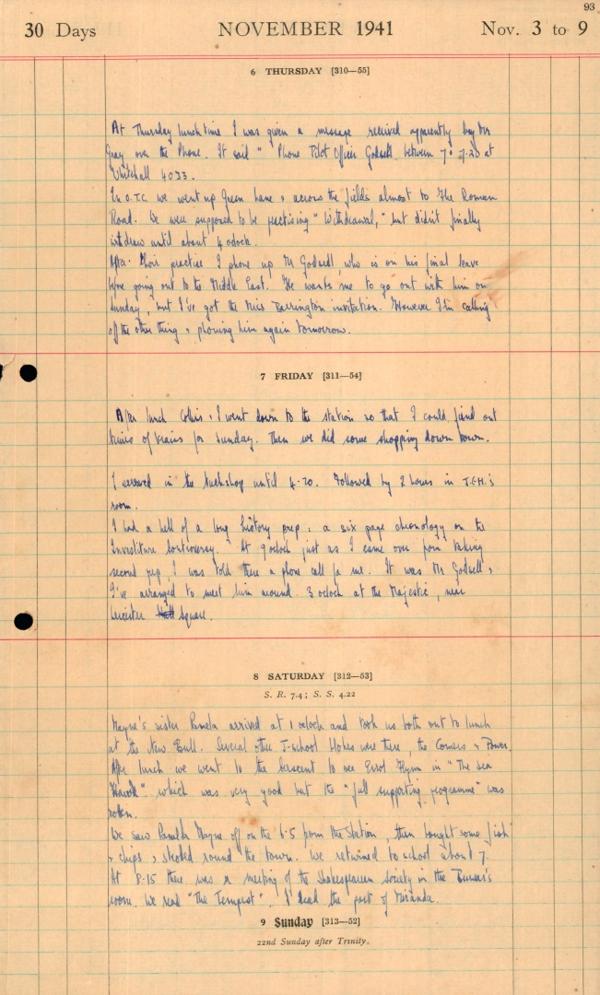 93
30 Days NOVEMBER 1941 Nov. 3 to 9
6 THURSDAY [310—55]
At Thursday lunch time I was given a message received apparently by Mr
Gray over the Phone. It said " Phone Pilot Officer Godsell between 7 & 7.20 at
Whitehall 4033.
In O.T.C. we went up Green Lane & across the fields almost to the Roman
Road. We were supposed to be practising "Withdrawal," but didn't finally
withdraw until about 4 oclock.
After practice I phone up Mr Godsell, who is on his final leave
before going out to the Middle East. He wants me to go out with him on
Sunday, but I've got the invitation. However I'm calling
off the other thing & phoning him again tomorrow.
7 FRIDAY [311—54]
After lunch Collis & I went down to the station so that I could find out
times of trains for Sunday. Then we did some shopping down town.
I served in the tuckshop until 4-20. Followed by 2 hours in J.E.H.'s
room.
I had a hell of a long history prep: a six page chronology on the
Investiture Controversy. At 9 oclock just as I came over from taking
second prep, I was told there a phone call for me. It was Mr Godsell &
I've arranged to meet him around 3 oclock at the Majestic, near
Leicester Square.
8 SATURDAY [312—53]
S. R. 7.4; S. S. 4.22
Mayne's sister Pamela arrived at 1 oclock and took us both out to lunch
at the New Bull. Several other were there, the
After lunch we went to the to see Errol Flynn in "The Sea
Hawk" which was very good but the "full supporting programme" was
rotten.
We saw Pamela Mayne off on the 6.5 from the Station, then bought some fish
& chips & strolled round the town. We returned to school about 7.
At 8-15 there was a meeting of the Shakespearean Society in the
room. We read "The Tempest". I read the part of Miranda.
9 Sunday [313—52]
22nd Sunday after Trinity.